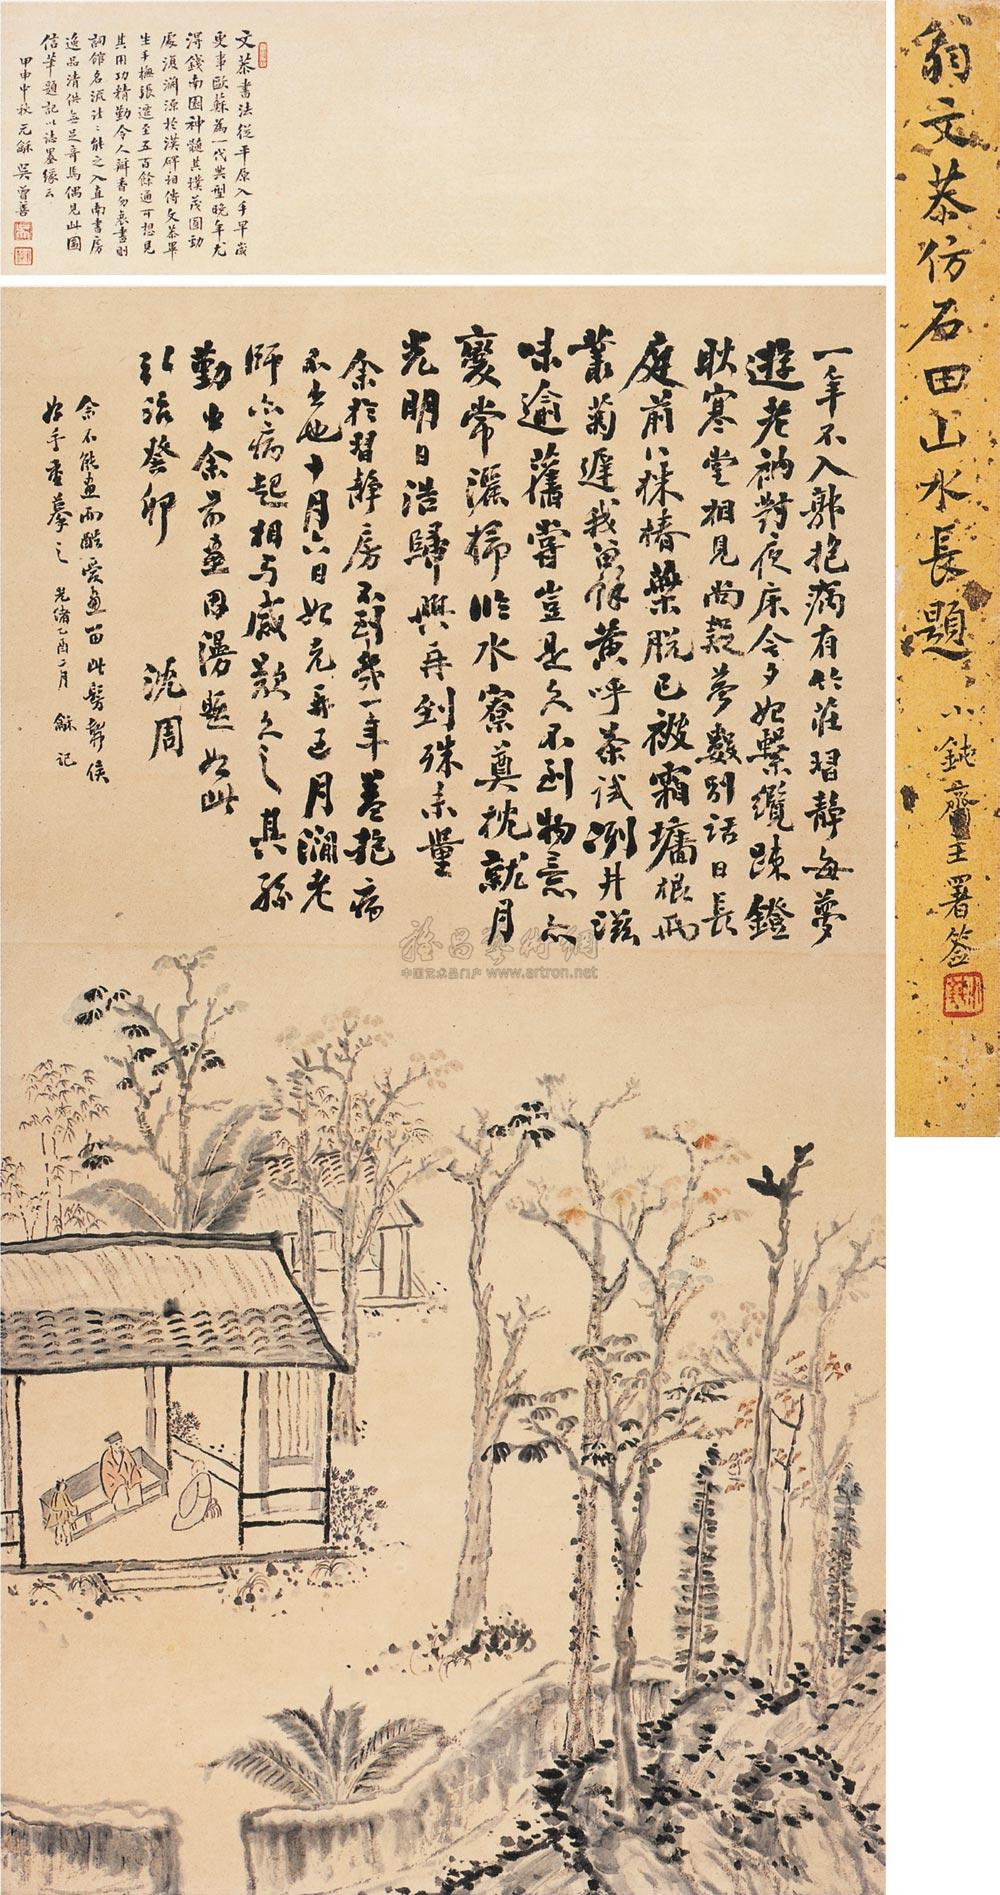 翁文恭仿石田山水長題
小鈍齋主署簽
文恭書法從平原入手早歲
更事歐蘇為一代典型晚年尤
得錢南園神髓其樸茂圓勁
處復淵源於漢碑相傳文恭畢
生手橅張遷至五百餘通可想見
其用功精勤令人瓣香勿衰畫則
詞館名流往往能之入直南書房
逸品清供無足奇焉偶見此圖
信筆題記以誌墨緣云
甲申中秋元龢吳曾善
一年不入郭抱病有竹莊習靜每夢
遊老衲對夜床今夕始繫纜踈鐙
耿寒堂相見尚疑夢數別話日長
庭前八株椿葉脫已被霜墻根兩
叢菊遲我留餘黃呼茶試洌井滋
味逾舊嘗豈是久不到物意亦
變常灑掃臨水寮奠枕就月
光明日浩歸興再到殊未量
余於習靜房不到幾一年蓋抱病
不出也十月六日始克再至月澗老
師亦病起相與感歎久之其孫
勤出余前畫因漫題如此
弘治癸卯 沈周
余不能畫而酷愛畫留此
始手重摹之 光緒乙酉二月 龢記
中国艺术品门户 www.artron.net